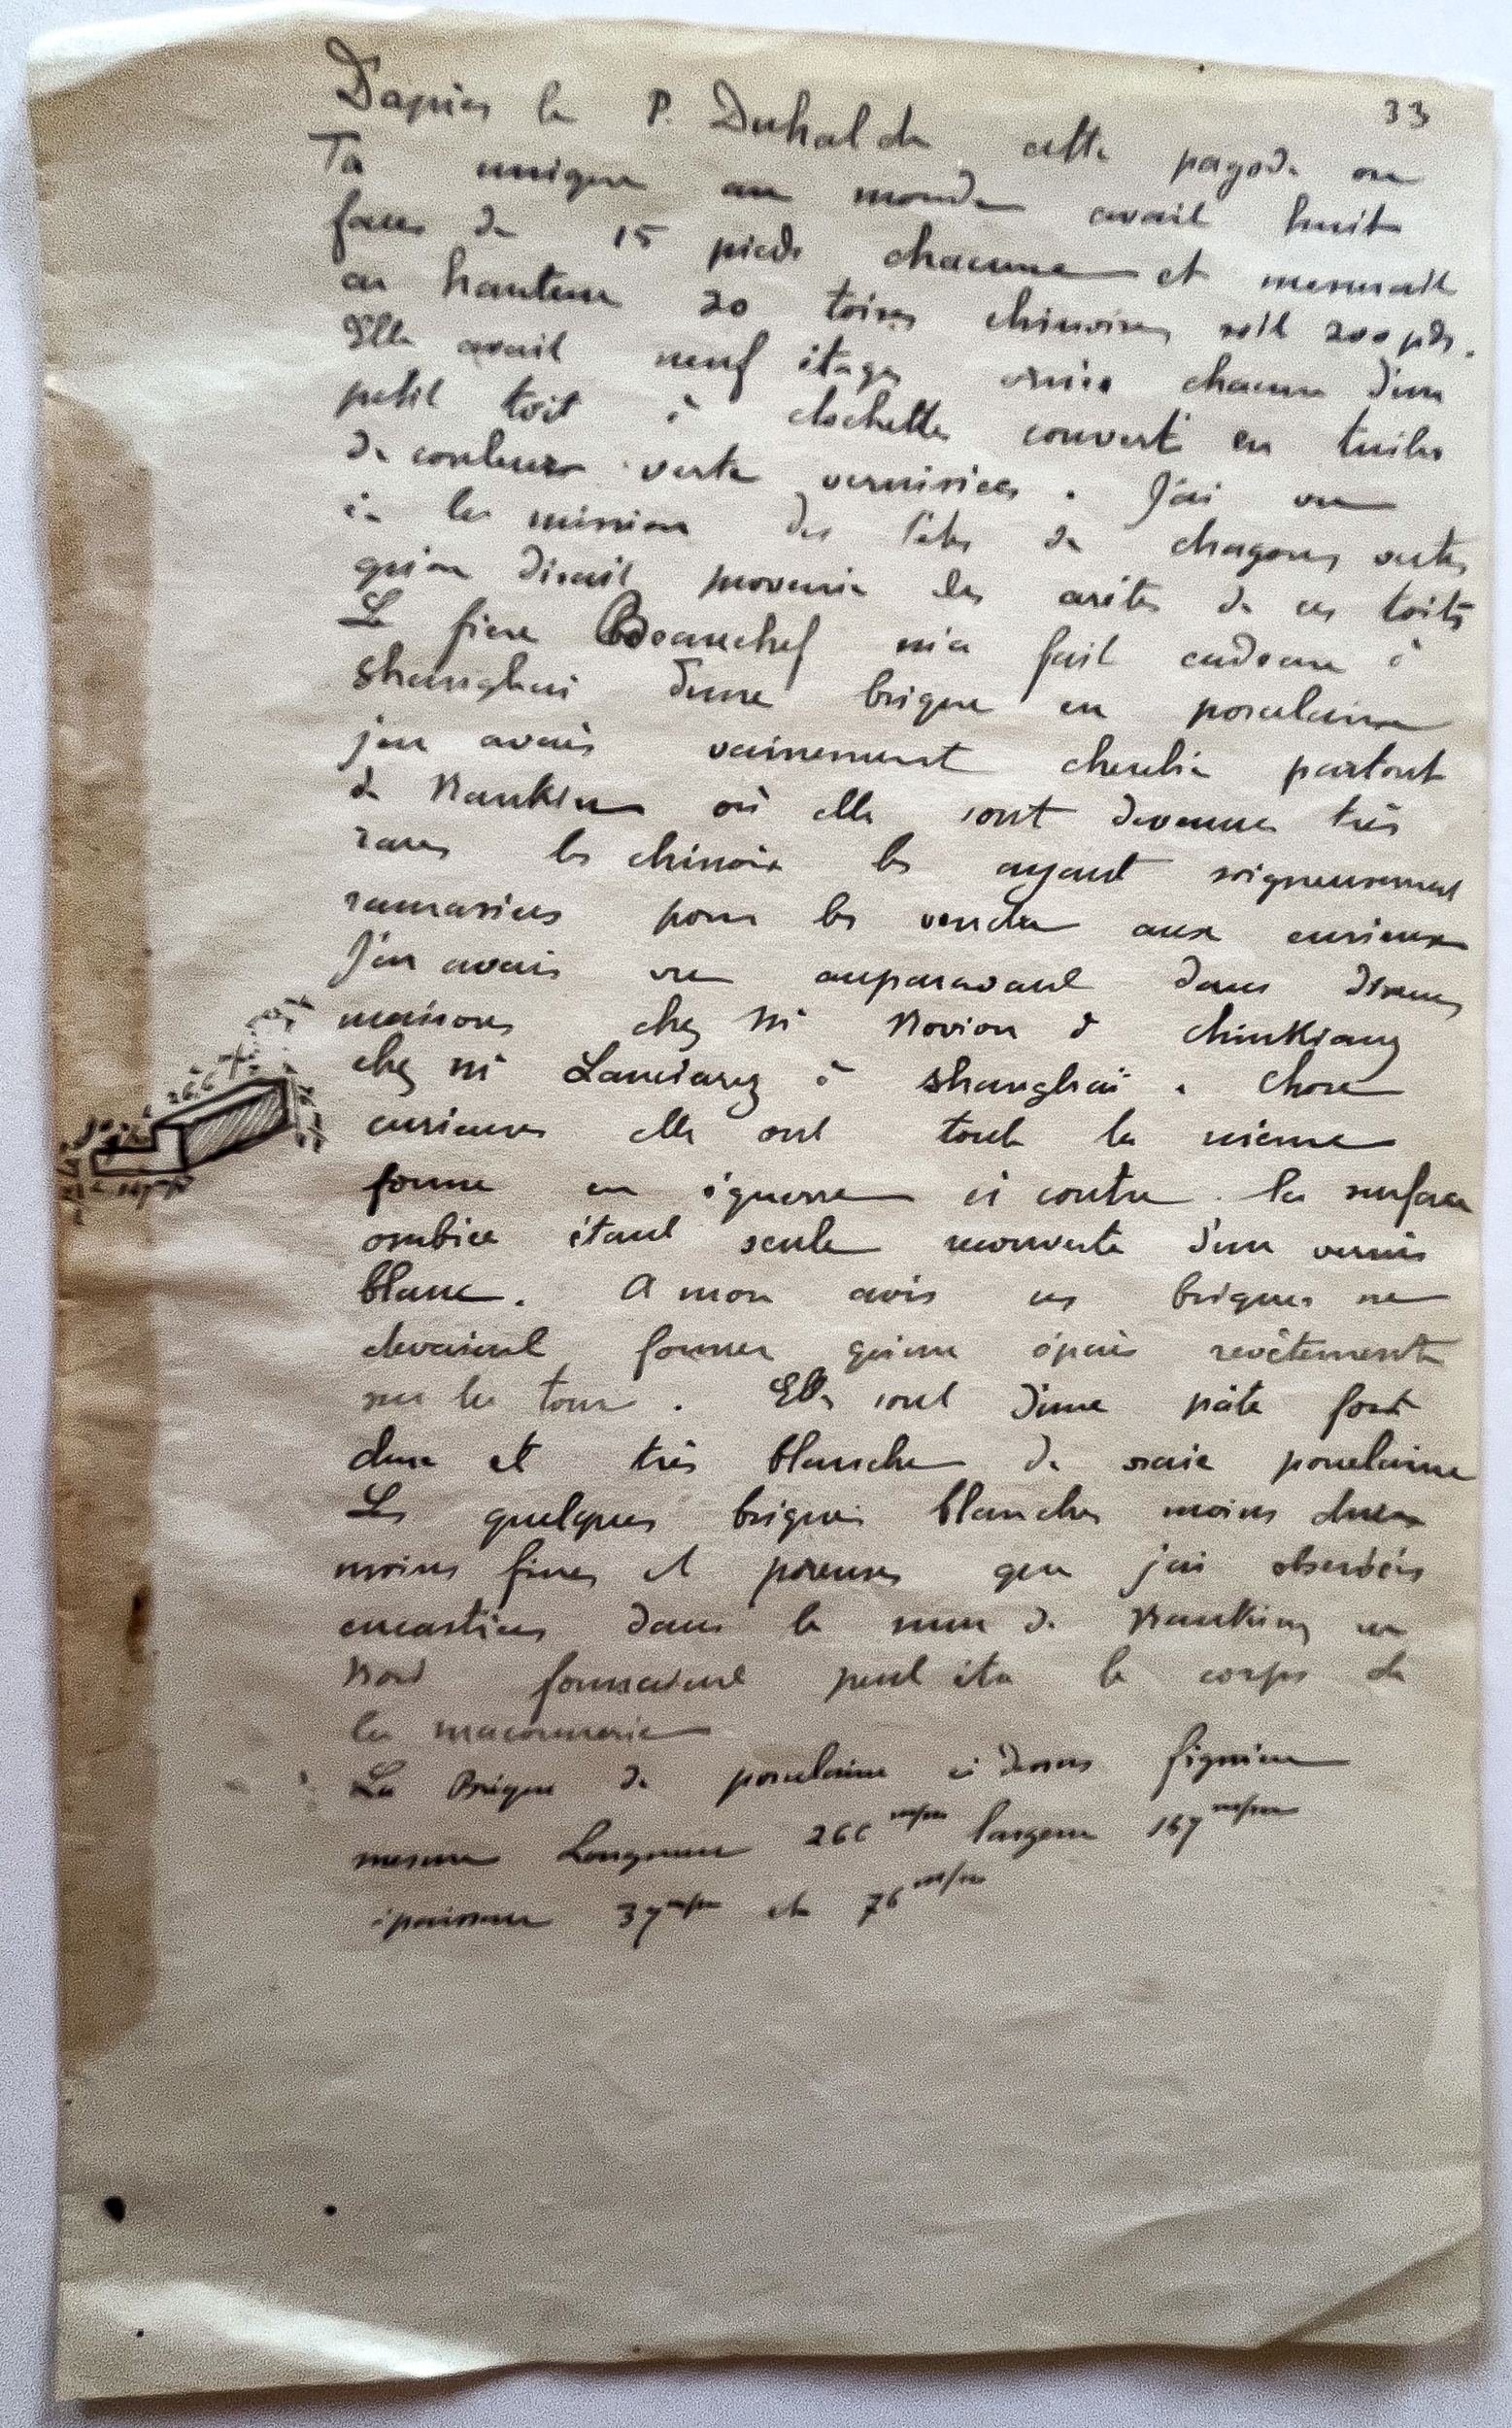 33
D'après le P. Duhalde cette pagode ou
Ta unique au monde avait huit
faces de 15 pieds chacune et mesurait
en hauteur 20 toises chinoises soit 200 pds.
Elle avait neuf étages ornés chacun d'un
petit toit à clochettes couvert en tuiles
de couleur verte vernissées. J'ai vu
à la mission des têtes de dragons vertes
qu'on disait provenir des arêtes de ces toits
Le frère Beauchef m'a fait cadeau à
Shanghai d'une brique en porcelaine
j'en avais vainement cherché partout
à Nankin où elles sont devenues très
rares les chinois les ayant soigneusement
ramassées pour les vendre aux curieux
J'en avais vu auparavant dans diverses
maisons chez Mr Novion à Chinkiang
chez Mr à Shanghaï. Chose
curieuse elles ont toute la même
forme en équerre ci contre. la surface
ombrée étant seule recouverte d'un vernis
blanc. A mon avis ces briques ne
devaient former qu'un épais revêtement
sur la tour. Elles sont d'une pâte fort
dure et très blanche de vraie porcelaine
Les quelques briques blanches moins dures
moins fines et poreuses que j'ai observées
encastrées dans le mur de Nanking au
Nord formaient peut être le corps de
la maçonnerie
La Brique de porcelaine ci dessus figurée
mesure Longueur 266 m/m largeur 167 m/m
épaisseur 37 m/m et 76 m/m
266
167